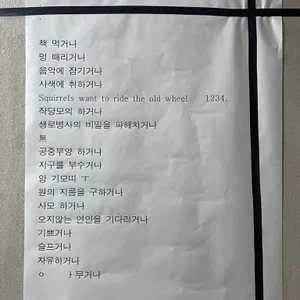 책 먹거나
멍 때리거나
음악에 잠기거나
사색에 취하거나
Squirrels want to ride the old wheel 1234.
작당모의 하거나
생로병사의 비밀을 파헤치거나
無
공중부양 하거나
지구를 부수거나
앙 기모띠 ㅜ
원의 지름을 구하거나
사모 하거나
오지않는 연인을 기다리거나
기쁘거나
슬프거나
자유하거나
ㅇ ㅏ무거나